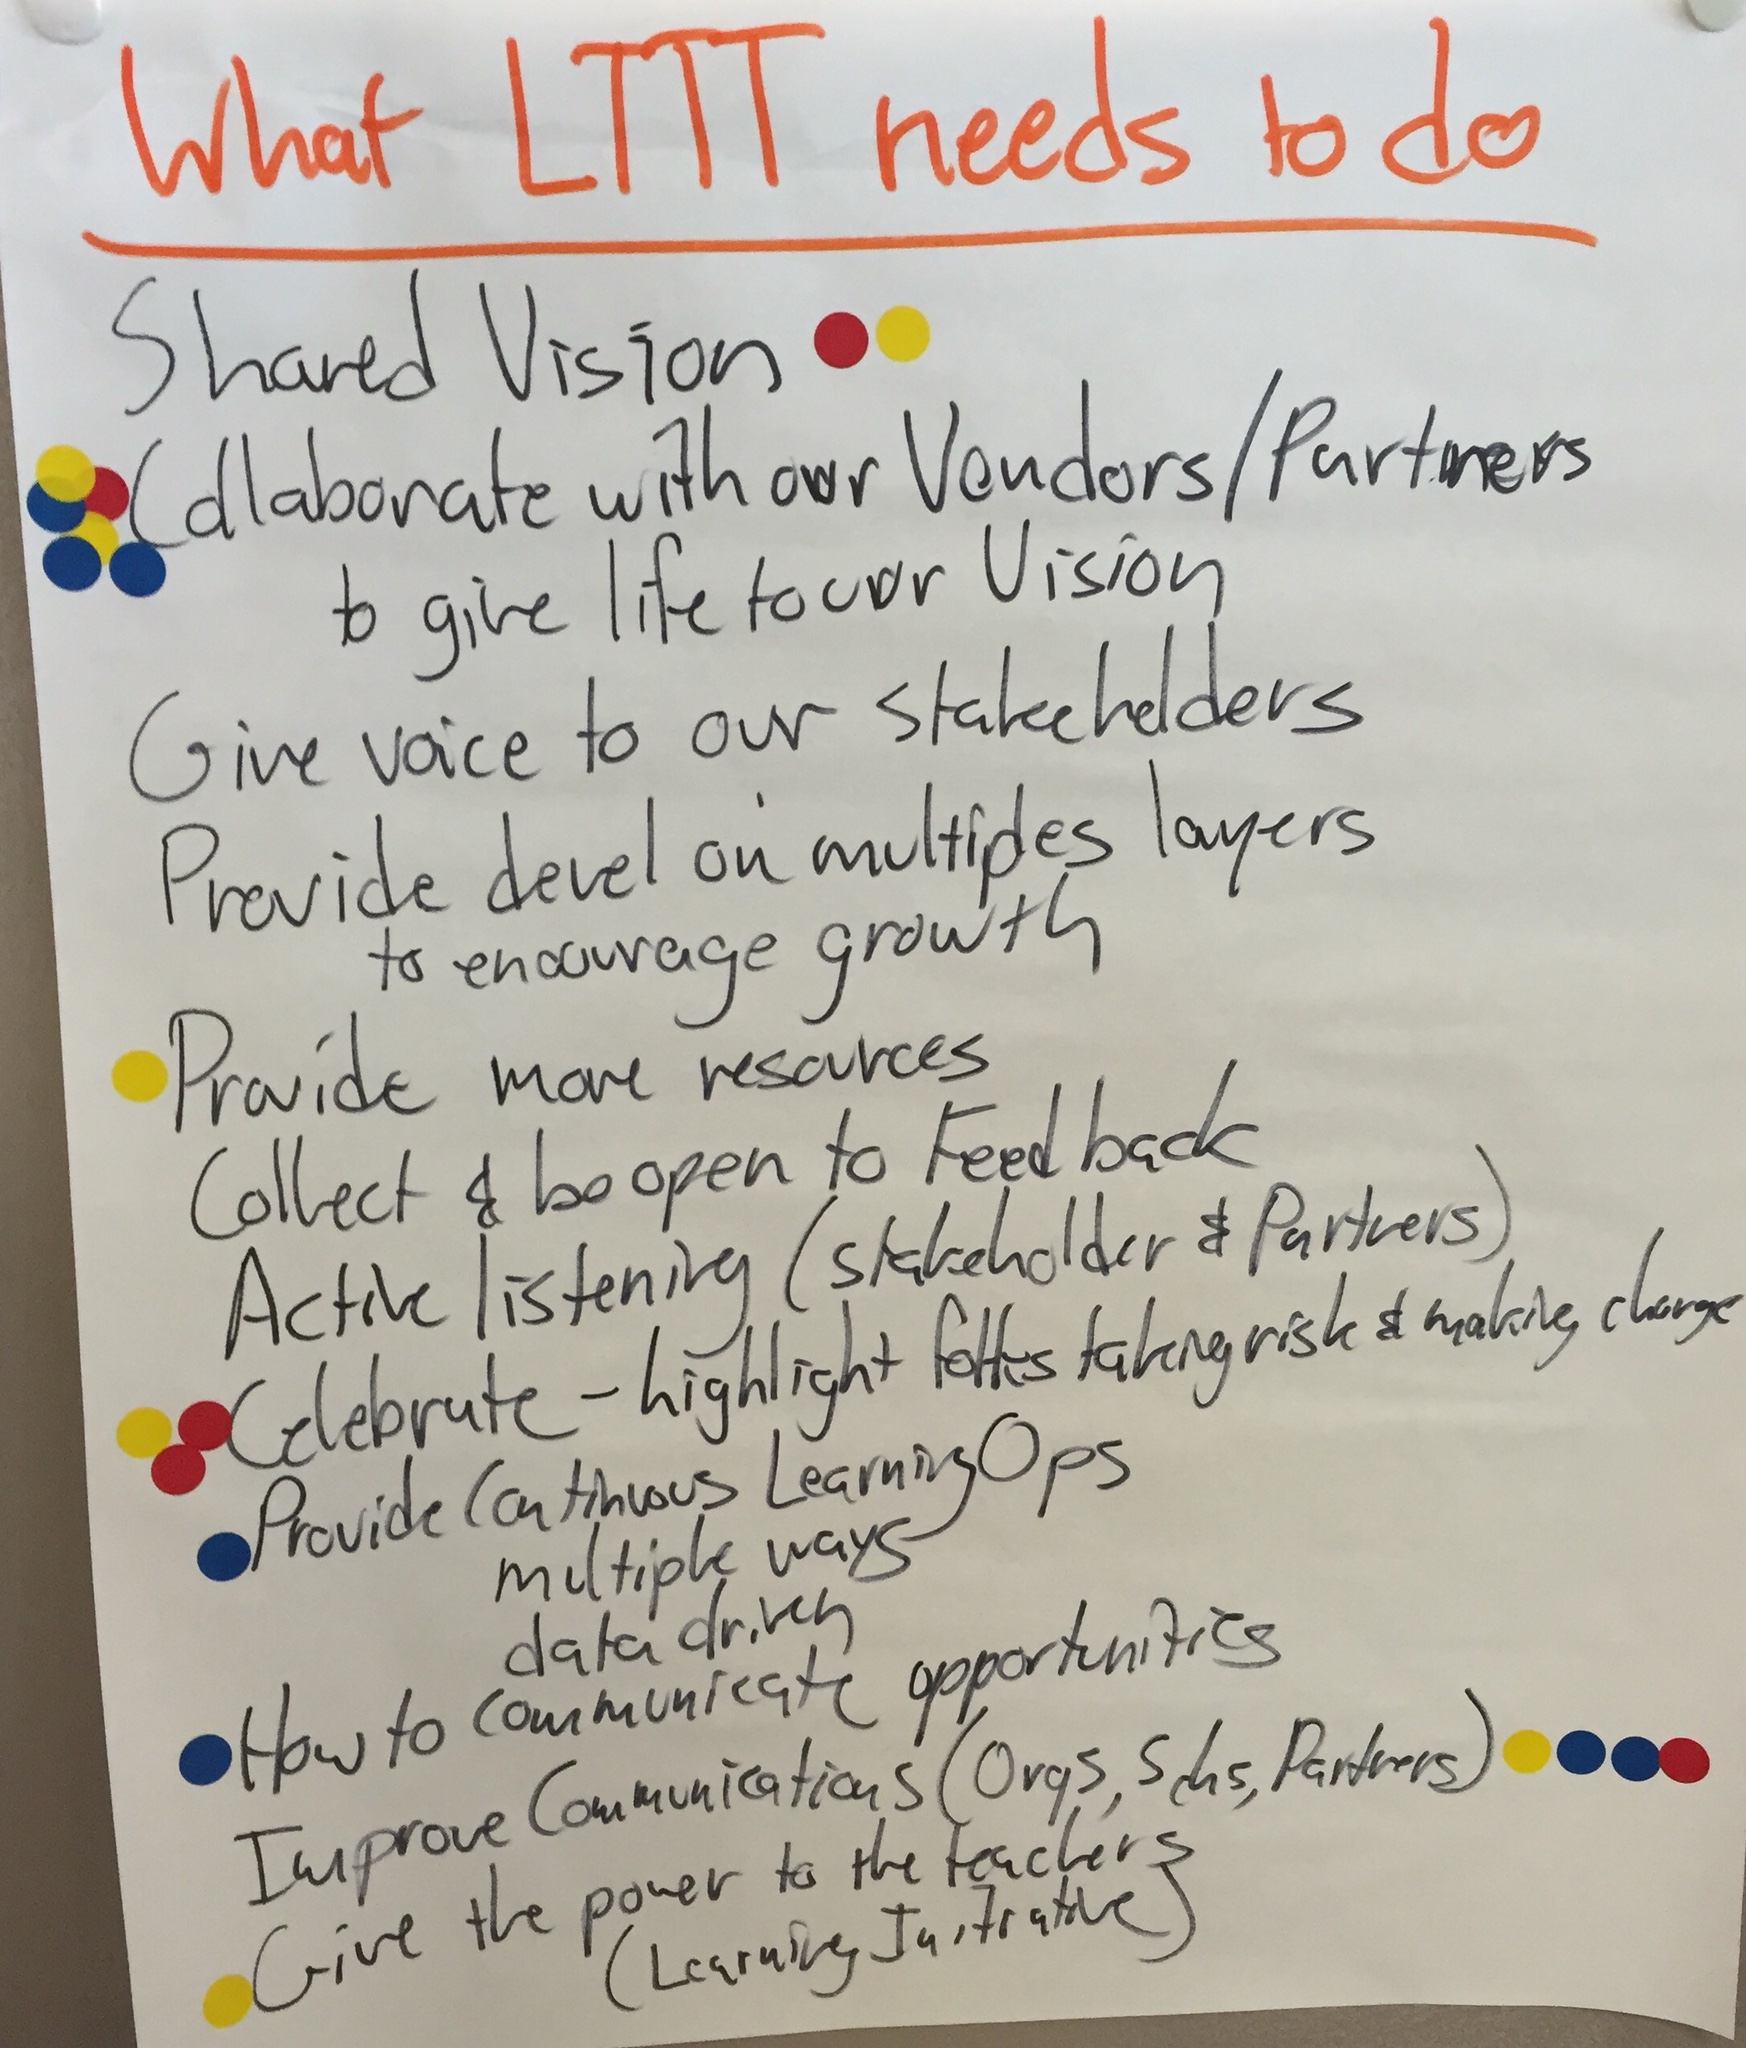 What LTTT needs to do
Shared Vision
Collaborate with our Vendors/Partners
to give life to our Vision
Give voice to our stakeholders
Provide devel on multiples layers
to encourage growth
Provide more resources
Collect & be open to Feedback
Active listening (stakeholder & Partners)
Celebrate - highlight folks taking risk & making change
Provide Continuous Learning Ops
multiple ways
data driven
How to communicate opportunities
Improve Communications (Orgs, Schs, Partners)
Give the power to the teachers
(Learning Initiative)